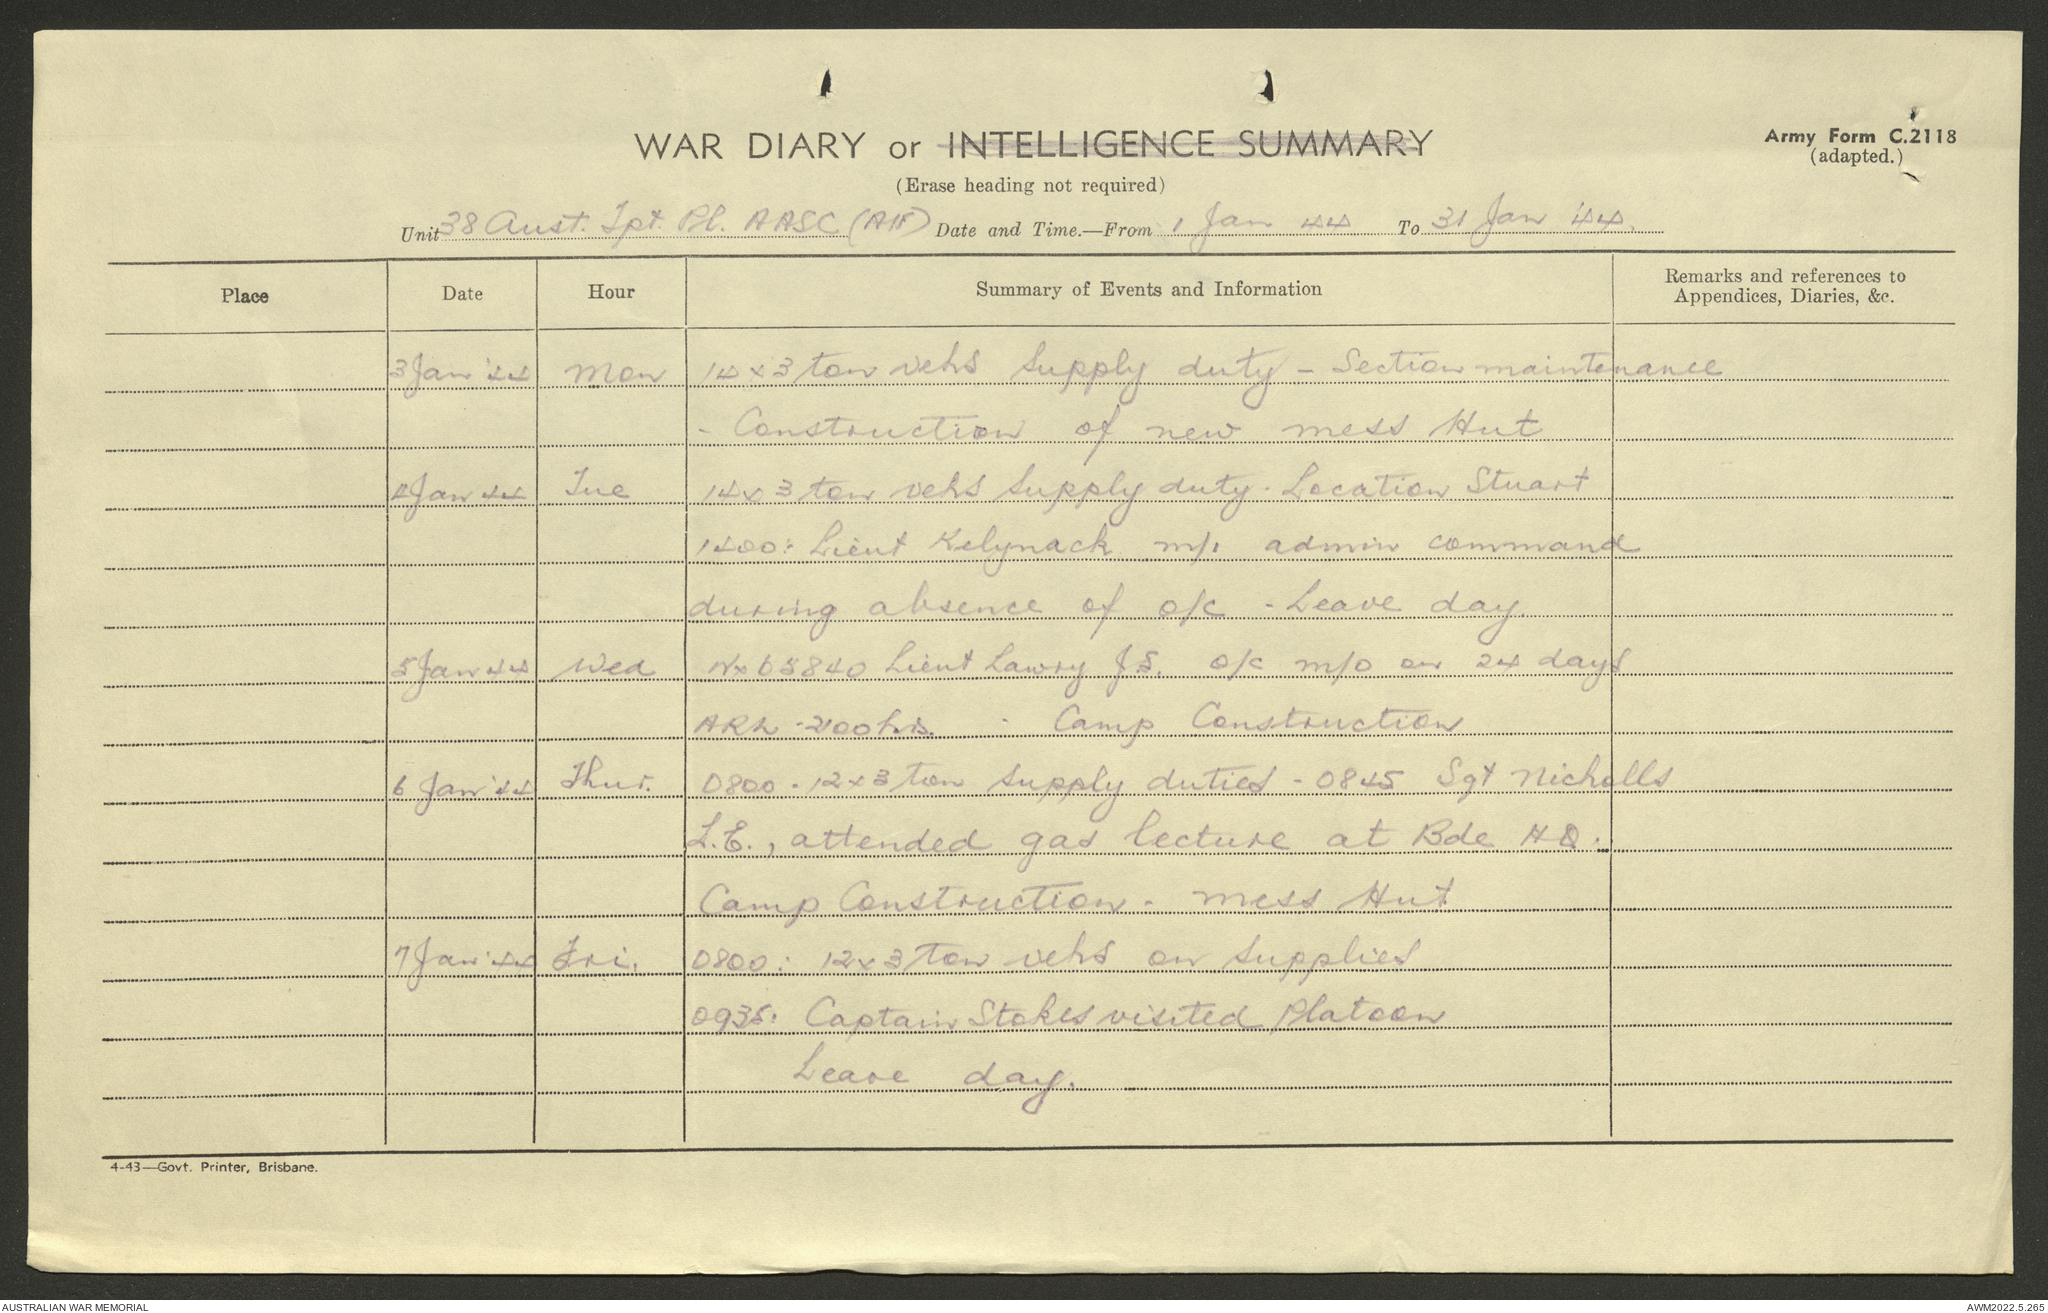 WAR DIARY or INTELLIGENCE SUMMARY
Army Form C.2118
(adapted.)
(Erase heading not required)
Unit 38 Aust. Tpt. Pl. AASC (AIF) Date and Time.—From 1 Jan 44 To 31 Jan '44.
Place Date Hour Summary of Events and Information Remarks and references to
Appendices, Diaries, &c.
3 Jan '44 Mon 14 x 3 ton vehs supply duty - Section maintenance
- Construction of new mess Hut
4 Jan 44 Tue 14 x 3 ton vehs supply duty. Location Stuart
1400: Lieut Kelynack m/i admin command
during absence of o/c - Leave day.
5 Jan 44 Wed Nx65840 Lieut Lawry J.S. o/c m/o on 24 days
ARL - 2100 hrs. - Camp Construction
6 Jan '44 Thur. 0800 - 12 x 3 ton supply duties - 0845 Sgt Nicholls
L.E., attended gas lecture at Bde HQ.
Camp Construction - mess Hut
7 Jan '44 Fri. 0800: 12 x 3 ton vehs on supplies
0935: Captain Stokes visited Platoon
Leave day.
4-43—Govt. Printer, Brisbane.
AUSTRALIAN WAR MEMORIAL
AWM2022.5.265